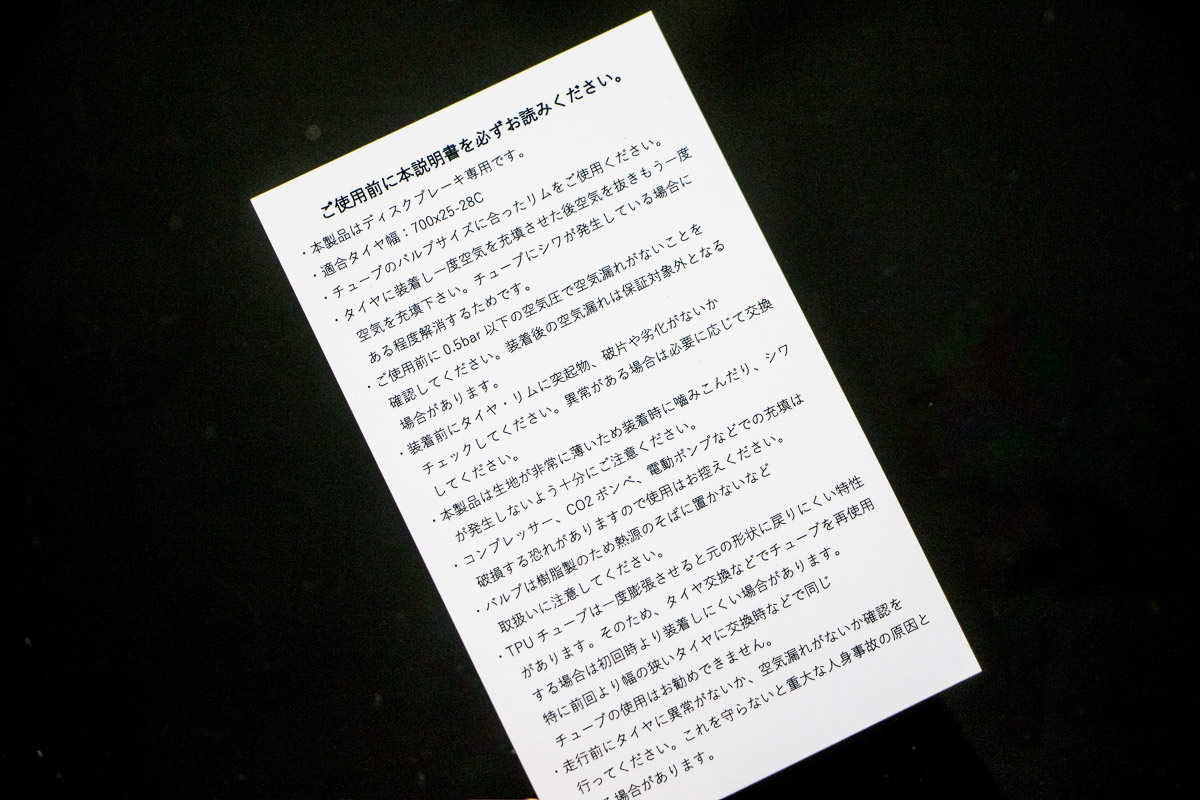 ご使用前に本説明書を必ずお読みください。
・本製品はディスクブレーキ専用です。
・適合タイヤ幅；700x25-28C
・チューブのバルブサイズに合ったリムをご使用ください。
・タイヤに装着し一度空気を充填させた後空気を抜きもう一度
空気を充填下さい。チューブにシワが発生している場合に
ある程度解消するためです。
・ご使用前に 0.5bar 以下の空気圧で空気漏れがないことを
確認してください。装着後の空気漏れは保証対象外となる
場合があります。
・装着前にタイヤ・リムに突起物、破片や劣化がないか
チェックしてください。異常がある場合は必要に応じて交換
してください。
・本製品は生地が非常に薄いため装着時に噛みこんだり、シワ
が発生しないよう十分にご注意ください。
・コンプレッサー、CO2 ボンベ、電動ポンプなどでの充填は
破損する恐れがありますので使用はお控えください。
・バルブは樹脂製のため熱源のそばに置かないなど
取扱いに注意してください。
・TPU チューブは一度膨張させると元の形状に戻りにくい特性
があります。そのため、タイヤ交換などでチューブを再使用
する場合は初回時より装着しにくい場合があります。
特に前回より幅の狭いタイヤに交換時などで同じ
チューブの使用はお勧めできません。
・走行前にタイヤに異常がないか、空気漏れがないか確認を
行ってください。これを守らないと重大な人身事故の原因と
る場合があります。